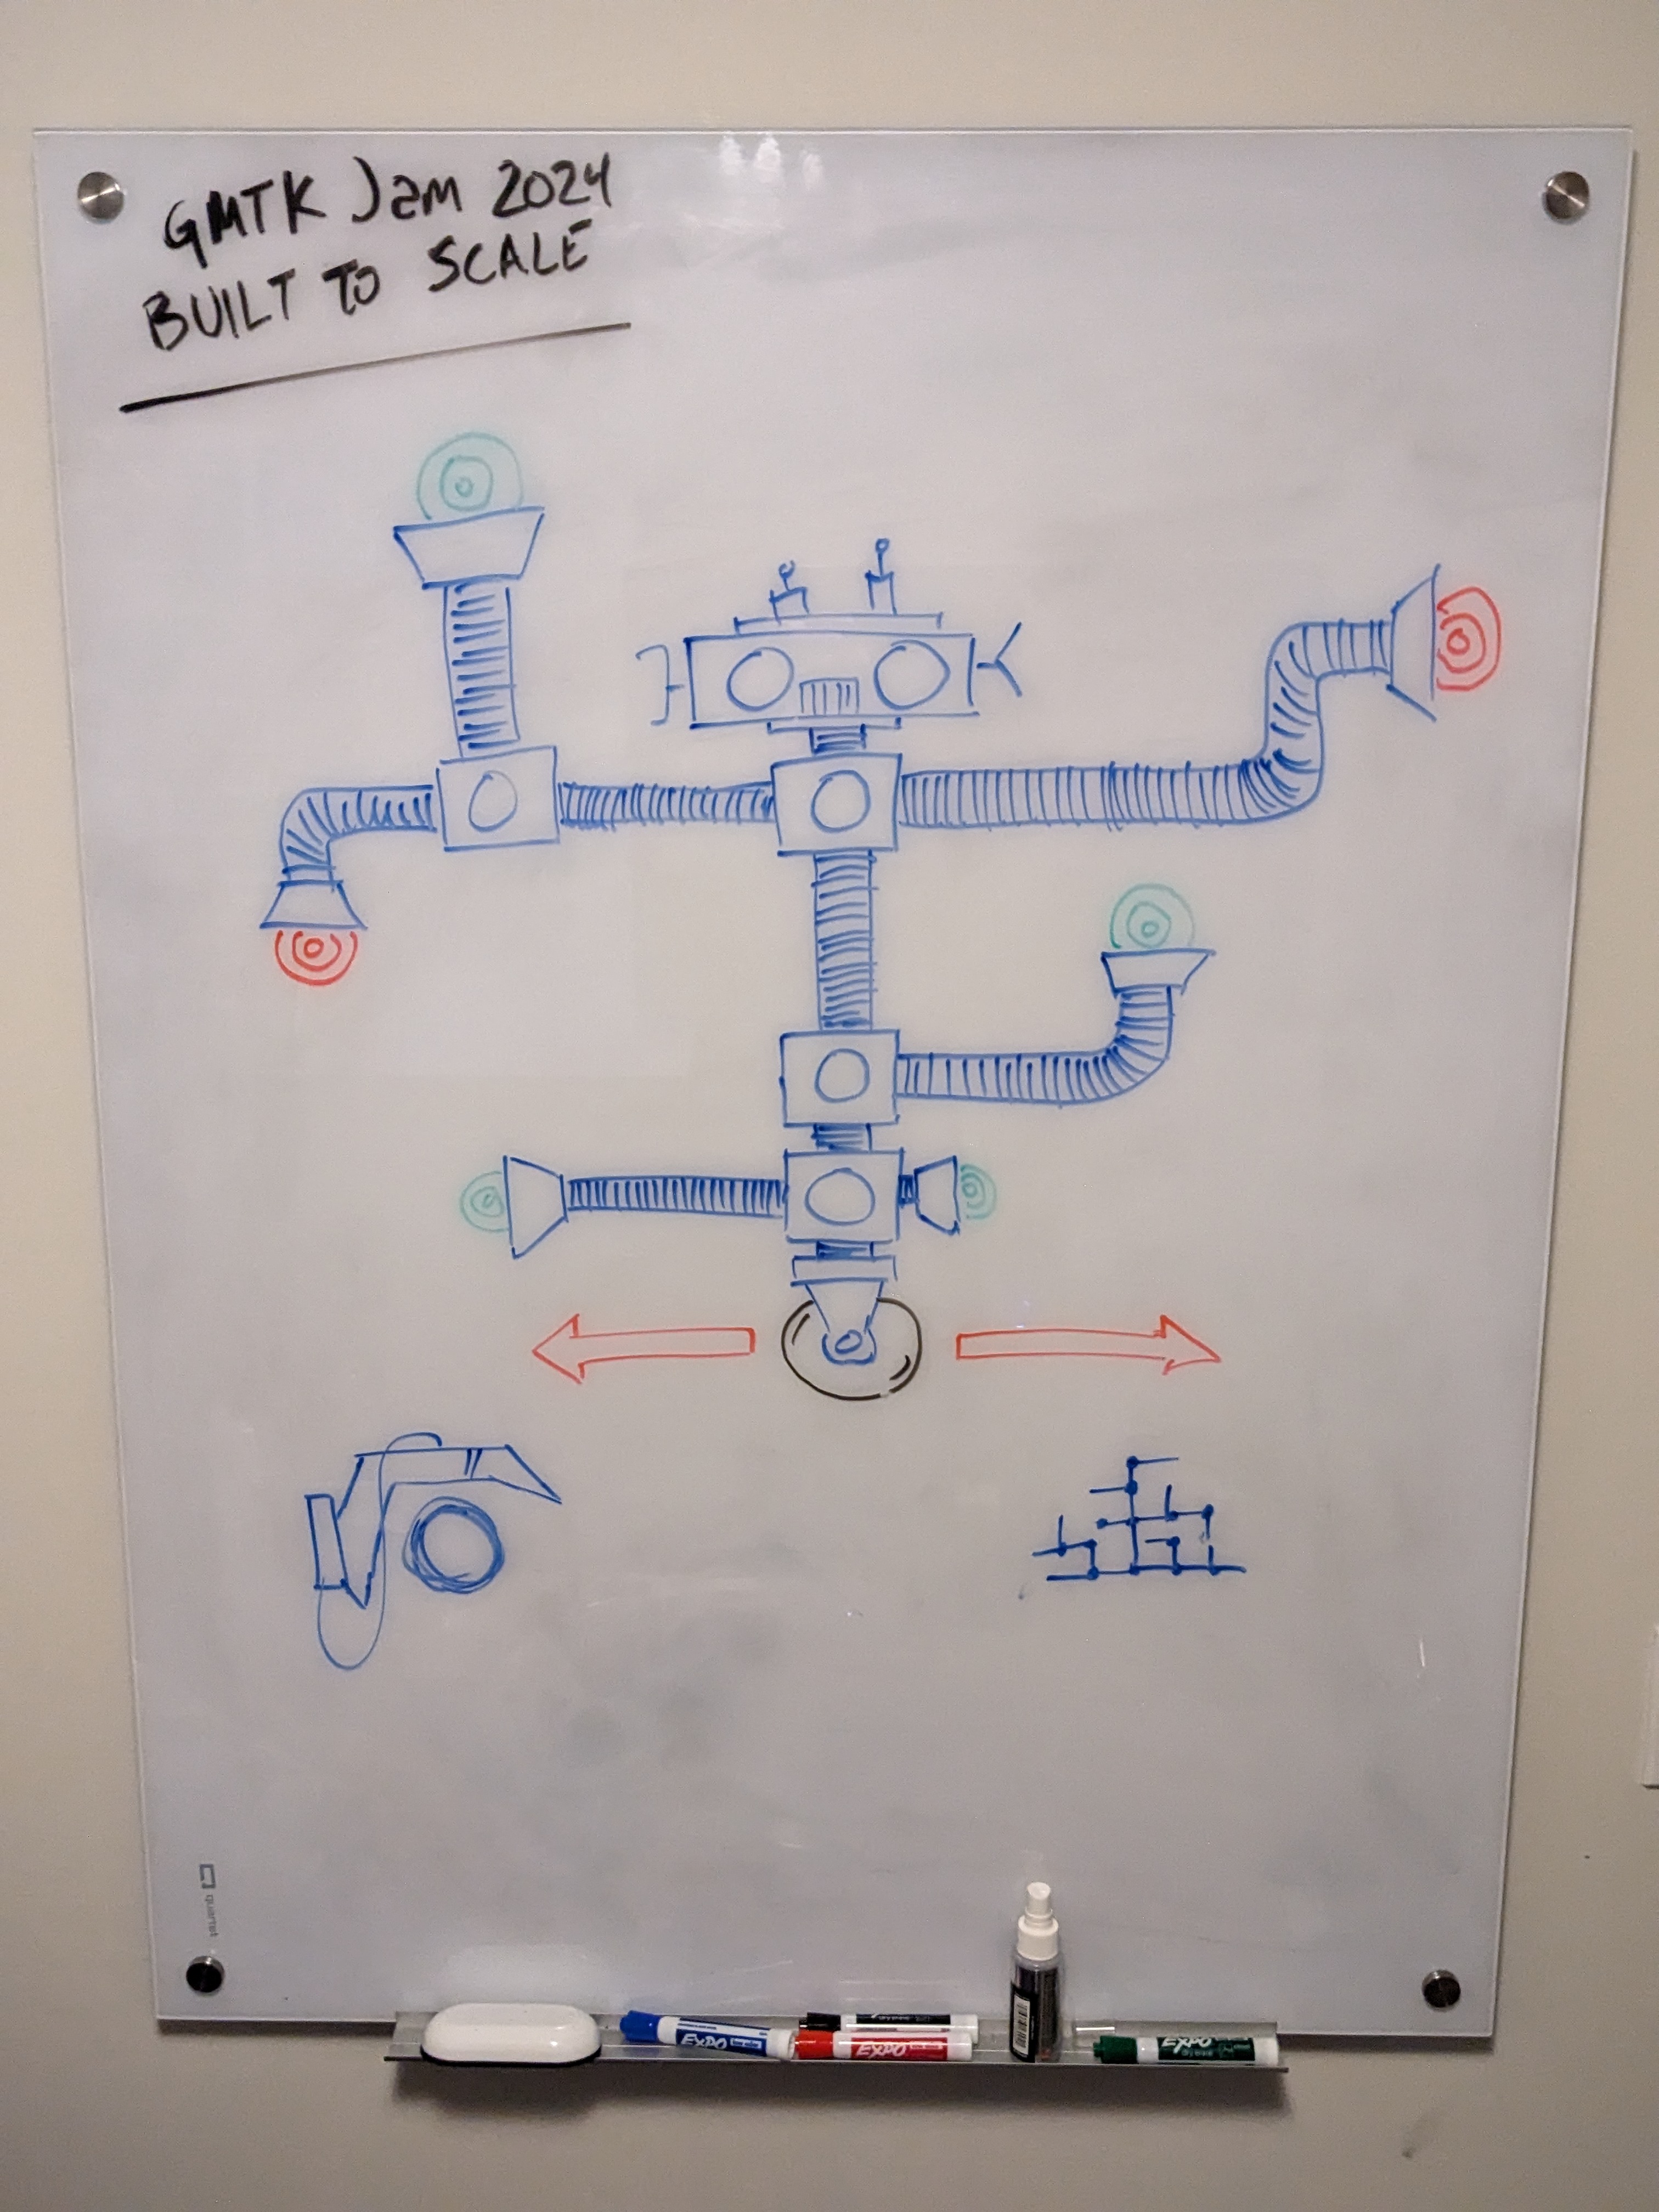 GMTK Jam 2024
BUILT TO SCALE
quartet
EXPO
EXPO
EXPO